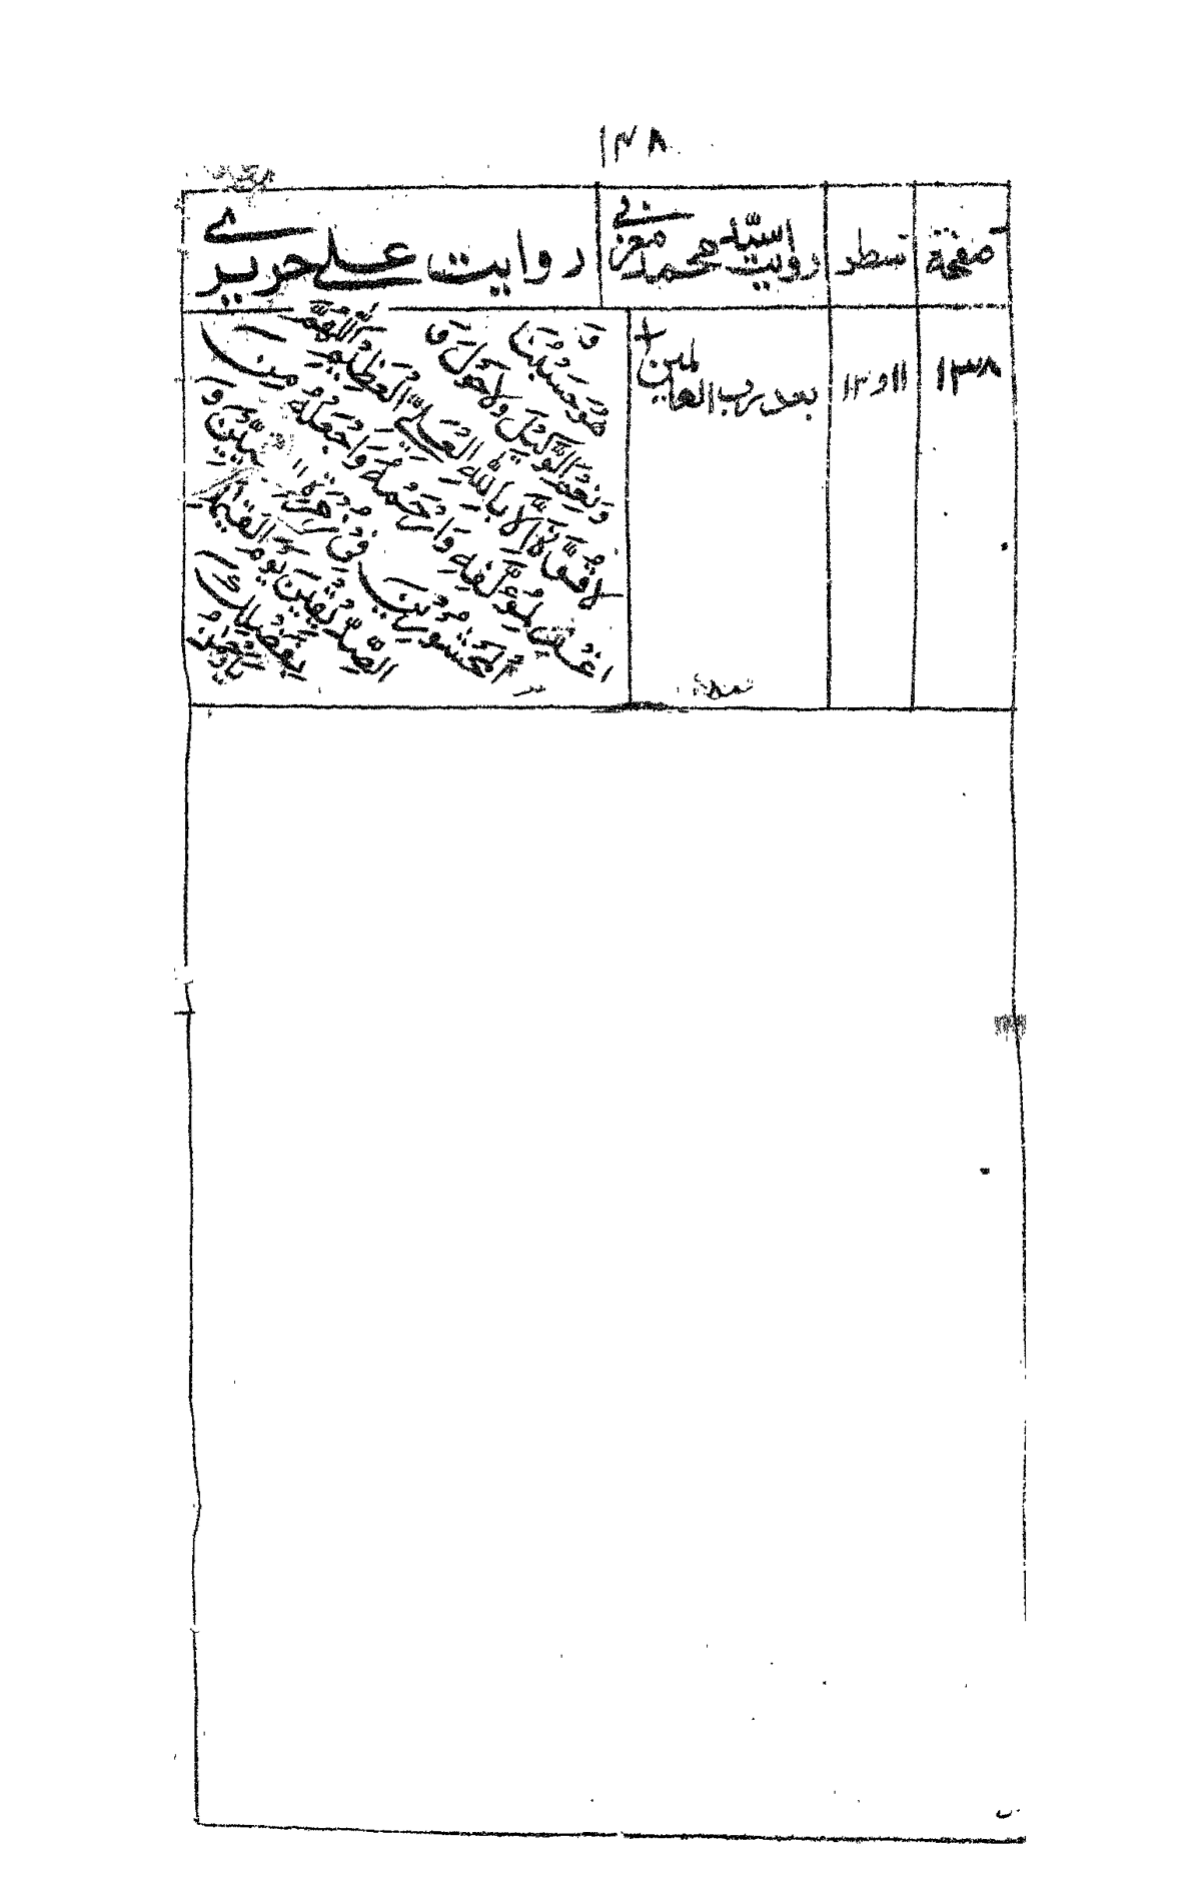 ۱۴۸
صفحة سطر روایت السیّد محمد مغربی روایت علی حریری
۱۳۸ ۱۱و۱۲ بعد رب العالمین +
وَهُوَ حَسْبُنَا
وَنِعْمَ الْوَكِيْلُ وَلَا حَوْلَ وَ
لَا قُوَّةَ اِلَّا بِاللّٰهِ الْعَلِيِّ الْعَظِيْمِ اَللّٰهُمَّ
اغْفِرْ لِمُؤَلِّفِهٖ وَارْحَمْهُ وَاجْعَلْهُ مِنَ
الْمَحْشُوْرِيْنَ فِيْ زُمْرَةِ النَّبِيِّيْنَ وَ
الصِّدِّيْقِيْنَ يَوْمَ الْقِيٰمَةِ
بِفَضْلِكَ يَا